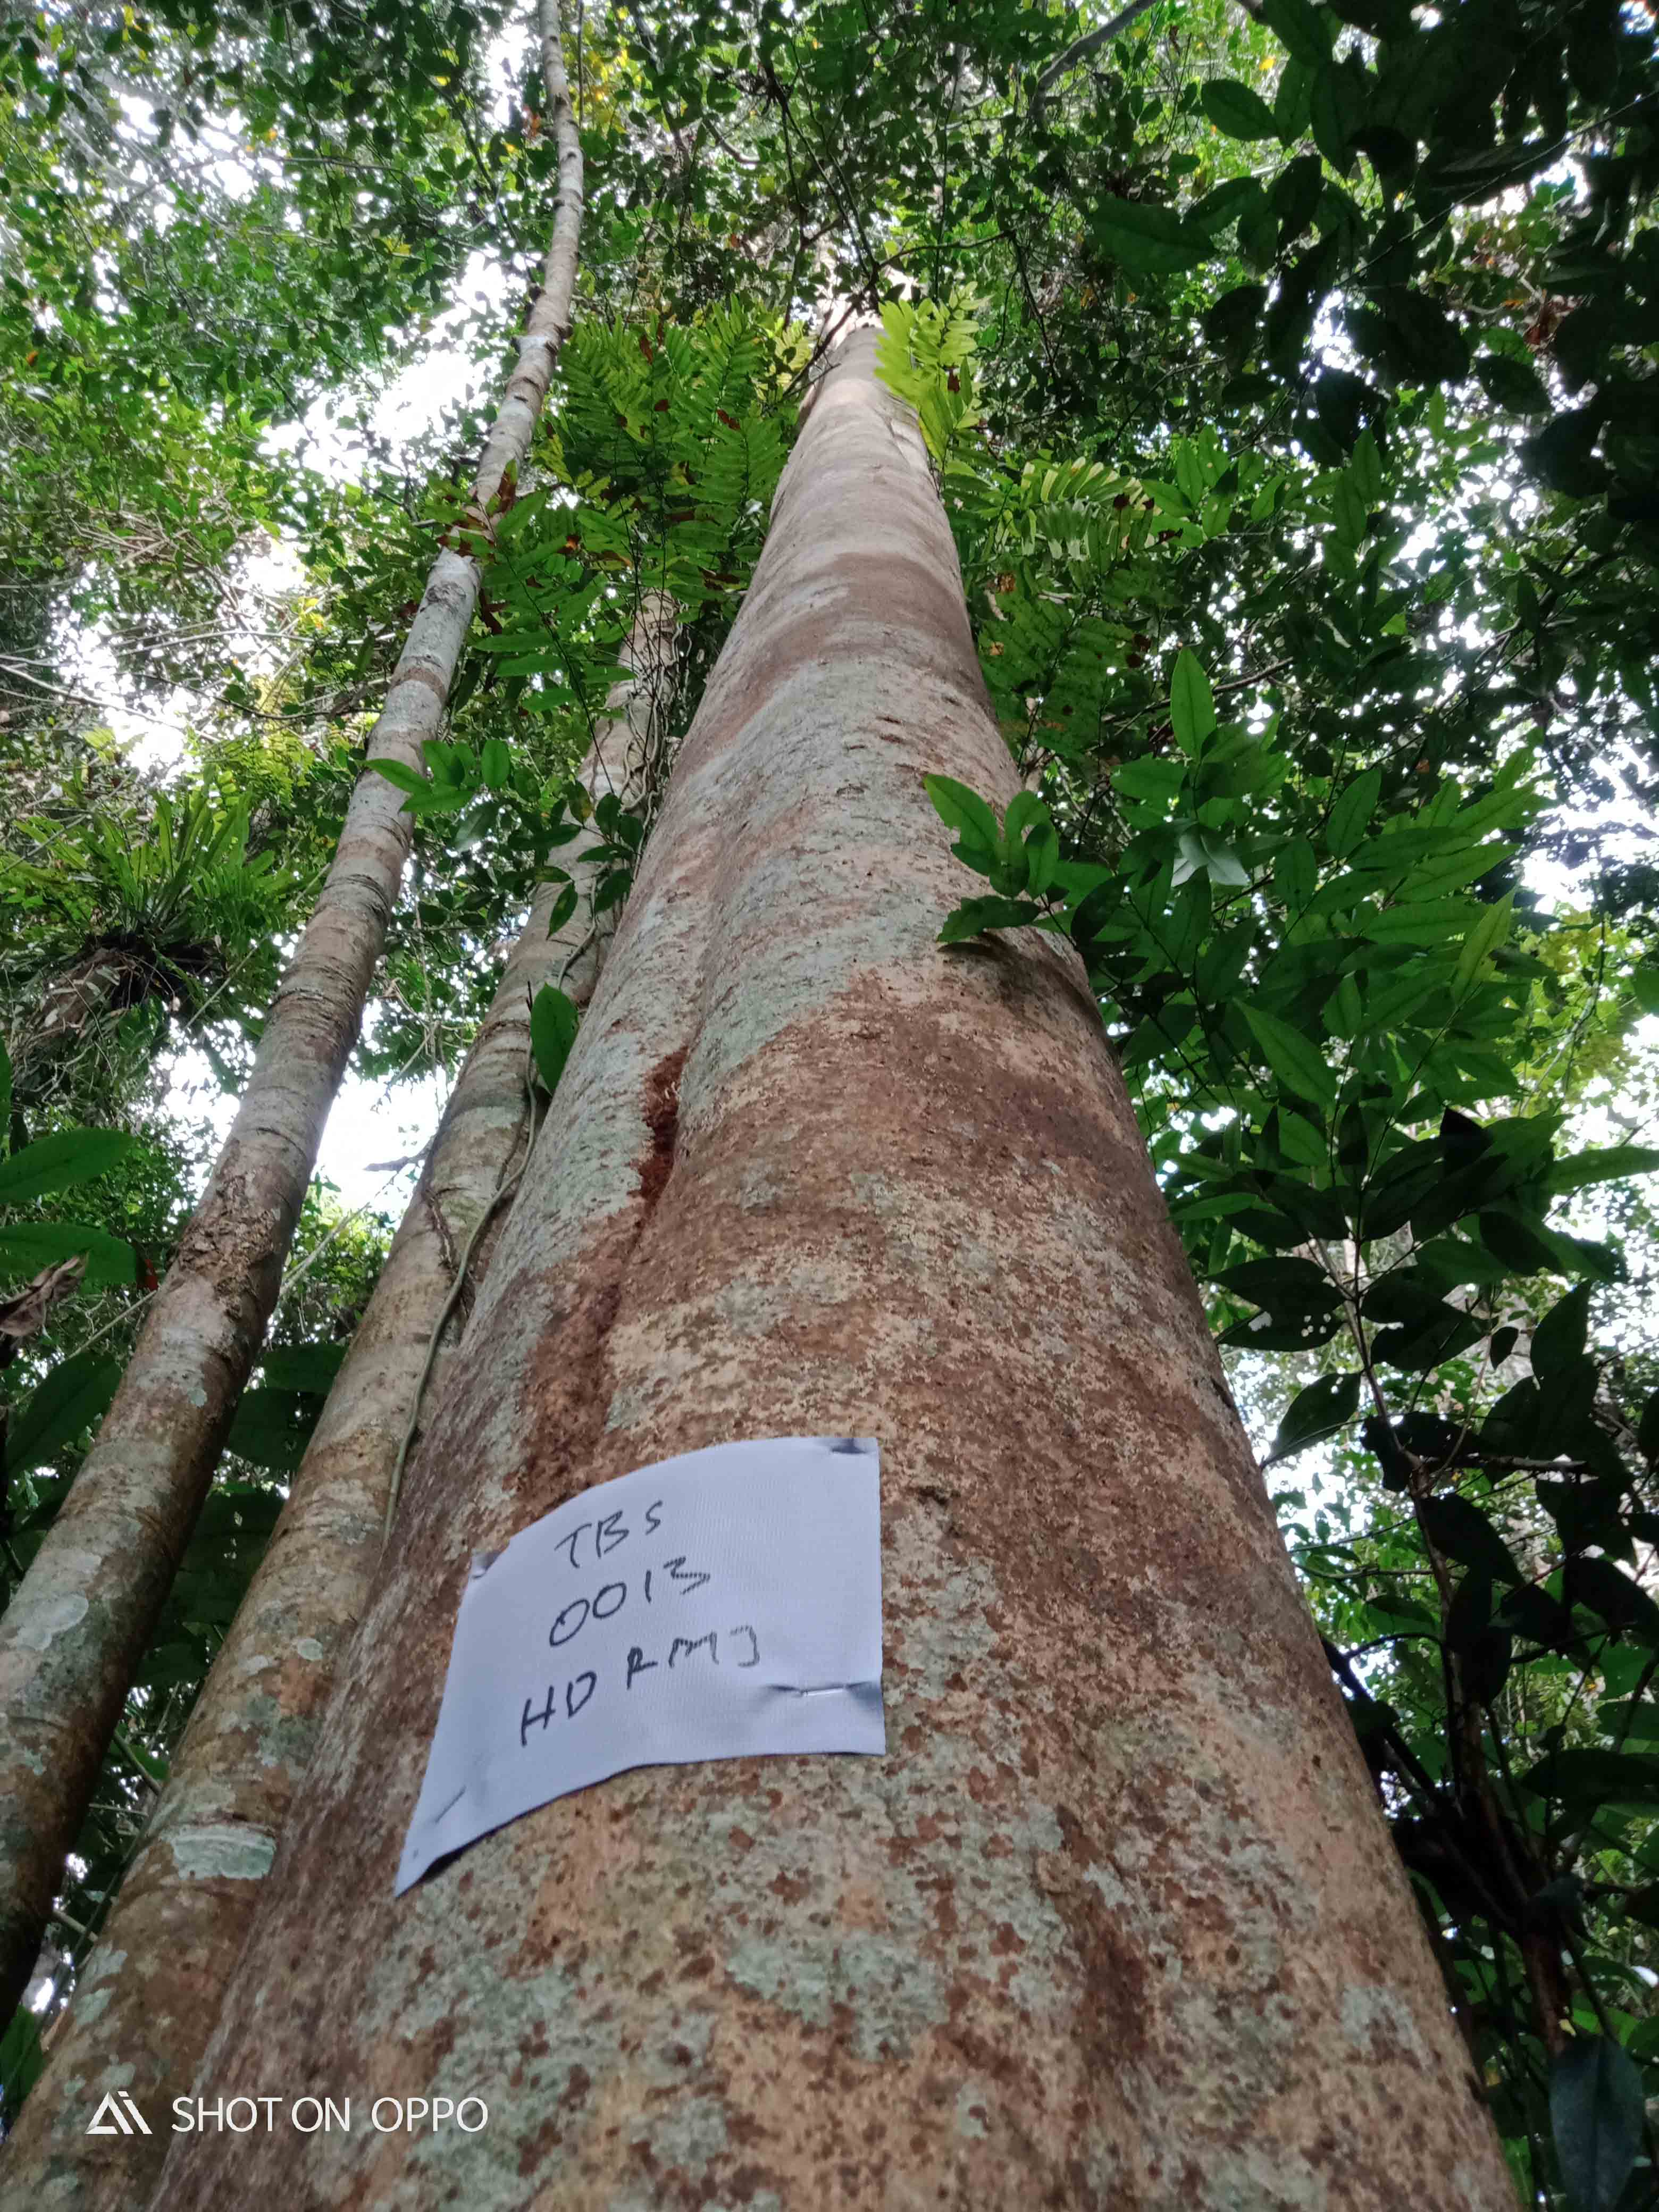 TBS
0013
HD RMJ
SHOT ON OPPO